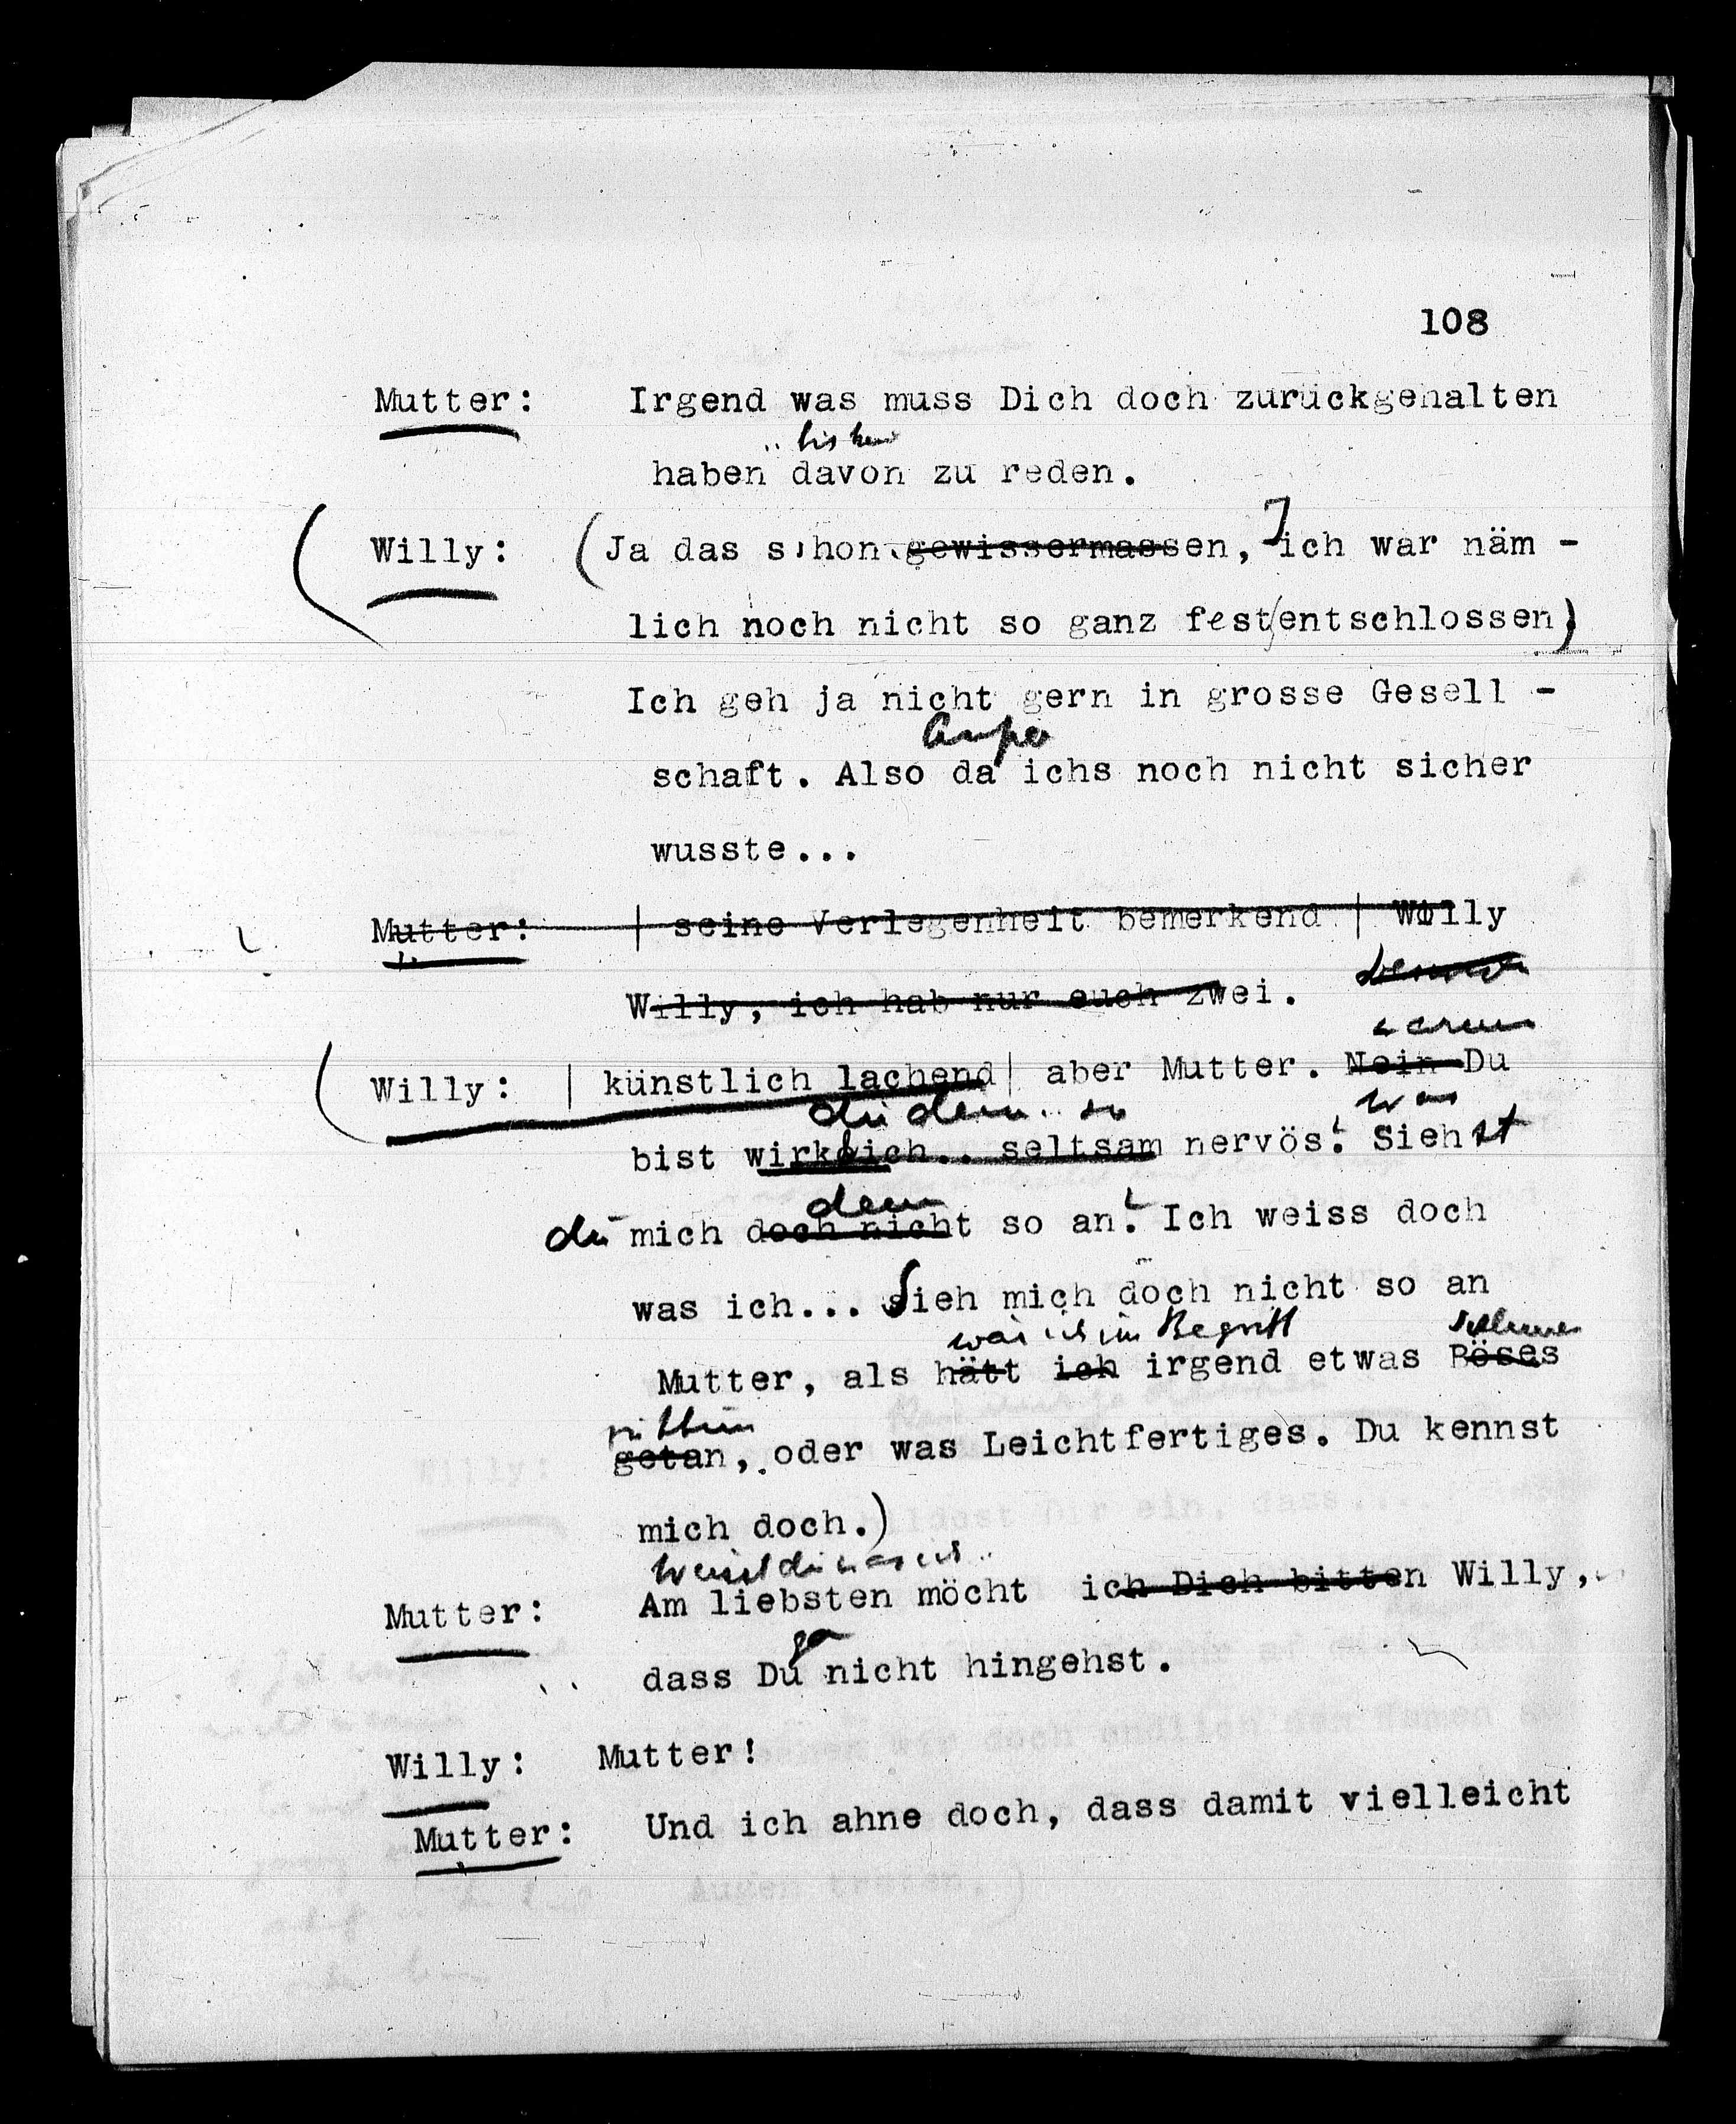 108
Mutter: Irgend was muss Dich doch zurückgehalten
bisher
haben davon zu reden.
Willy: (Ja das schon gewissermassen, ich war näm -
lich noch nicht so ganz fest entschlossen)
Ich geh ja nicht gern in grosse Gesell -
schaft. Also da ichs noch nicht sicher
wusste...
Mutter: | seine Verlegenheit bemerkend | Willy
Willy, ich hab nur euch zwei.
warum
Willy: | künstlich lachend| aber Mutter. Nein Du
du denn .. so was
bist wirklich.. seltsam nervös? Siehst
denn
du mich doch nicht so an? Ich weiss doch
was ich... Sieh mich doch nicht so an
wär ich im Begriff
Mutter, als hätt ich irgend etwas Böses
zu thun
getan, oder was Leichtfertiges. Du kennst
mich doch.)
weisst du was ich ..
Mutter: Am liebsten möcht ich Dich bitten Willy,
dass Du nicht hingehst.
Willy: Mutter!
Mutter: Und ich ahne doch, dass damit vielleicht